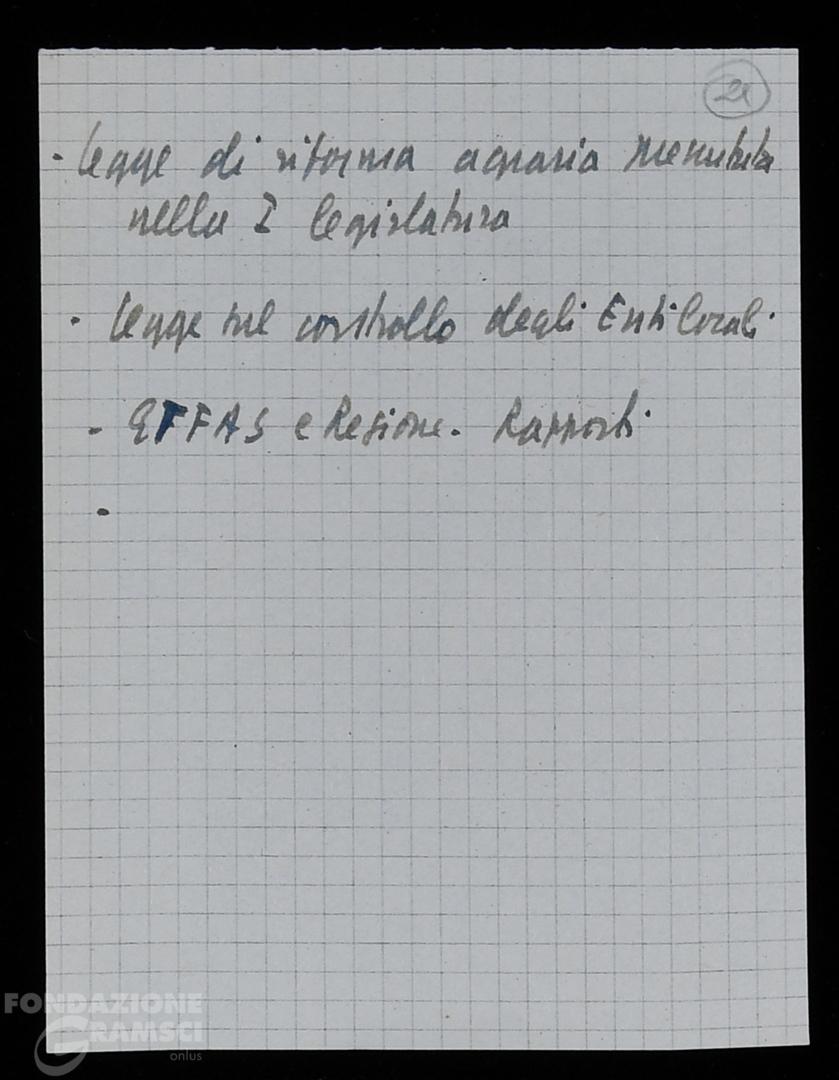 21
- Legge di riforma agraria presentata
nella I legislatura
- Legge sul controllo degli Enti locali.
- ETFAS e Regione. Rapporti.
-
FONDAZIONE
GRAMSCI
onlus